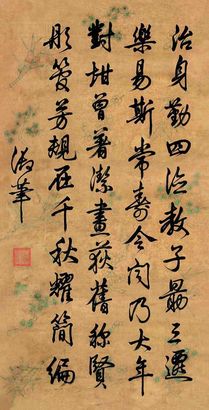 治身勤四德教子勗三遷
樂易斯常壽令聞乃大年
封鮓曾著潔畫荻舊称賢
彤管芳規在千秋耀簡編
御筆